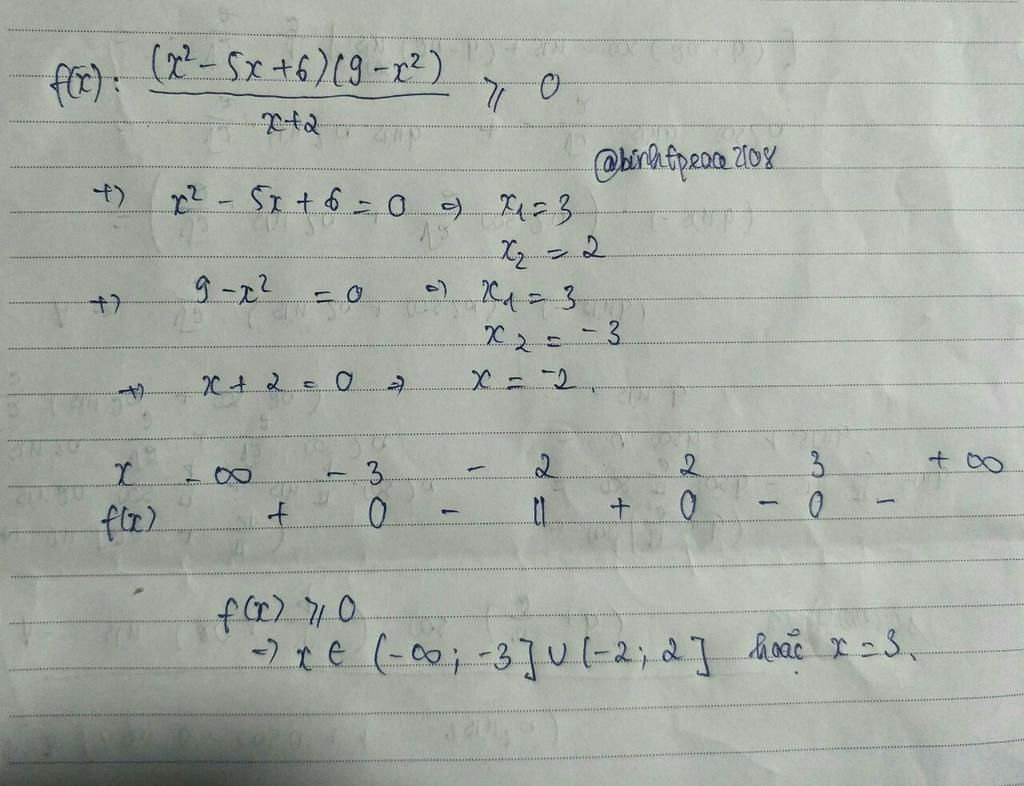 f(x): (x² - 5x + 6)(9 - x²) / x+2 ⩾ 0
@binhtpeace2108
+) x² - 5x + 6 = 0 => x₁ = 3
x₂ = 2
+) 9 - x² = 0 => x₁ = 3
x₂ = -3
+) x + 2 = 0 => x = -2.
x -∞ -3 -2 2 3 +∞
f(x) + 0 - || + 0 - 0 -
f(x) ⩾ 0
-> x ∈ (-∞; -3] ∪ (-2; 2] hoặc x = 3.